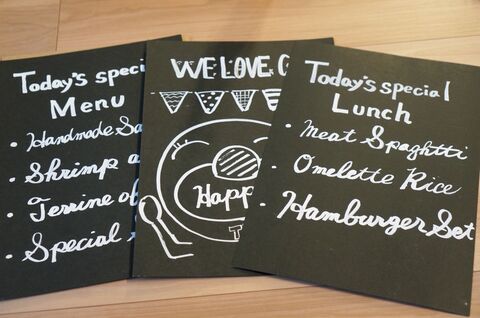 Today's speci
Menu
• Handmade Sa
• Shrimp a
• Terrine of
• Special
WE LOVE
Happ
T
Today's special
Lunch
• Meat Spaghtti
• Omelette Rice
• Hamburger Set